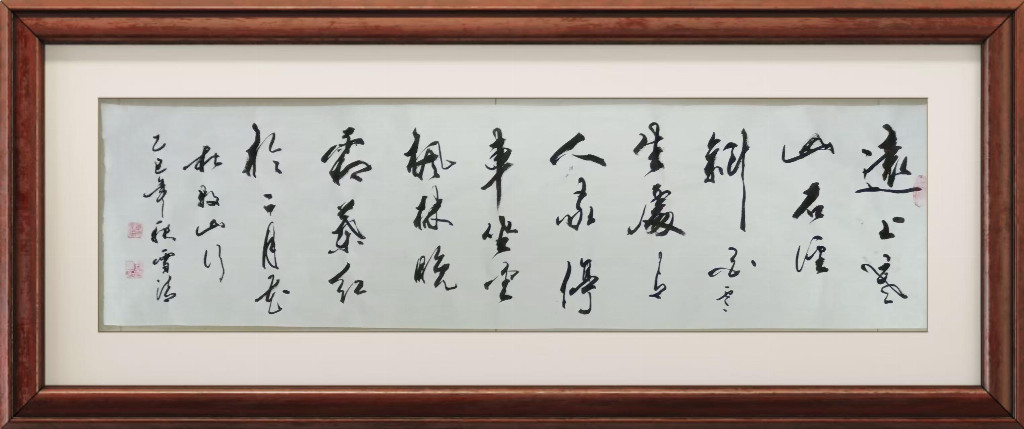 遠上寒
山石徑
斜白云
生處有
人家停
車坐愛
楓林晚
霜葉紅
於二月花
杜牧山行
乙巳年